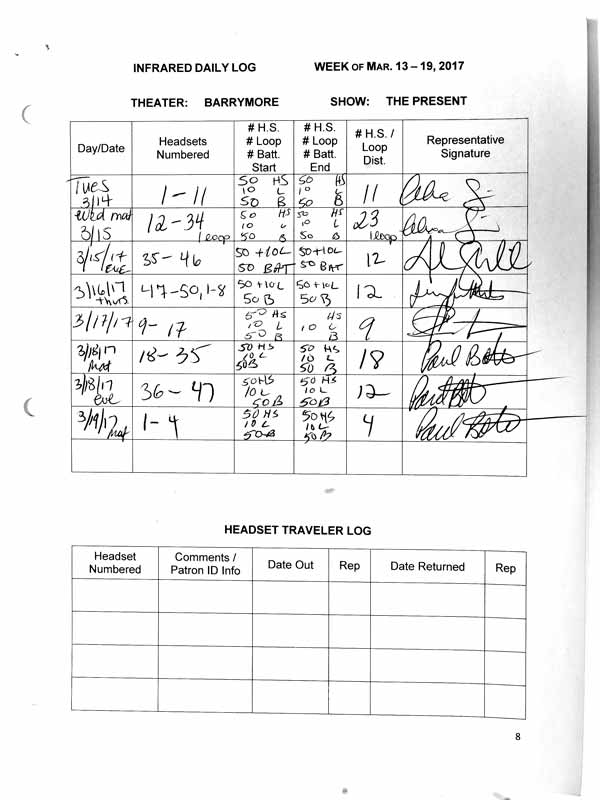 INFRARED DAILY LOG WEEK OF MAR. 13 – 19, 2017
THEATER: BARRYMORE SHOW: THE PRESENT
Day/Date Headsets Numbered # H.S. # Loop # Batt. Start # H.S. # Loop # Batt. End # H.S. / Loop Dist. Representative Signature
Tues 3/14 1 – 11 50 HS 10 L 50 B 50 HS 10 L 50 B 11
Wed mat 3/15 12 – 34 1 loop 50 HS 10 L 50 B 50 HS 10 L 50 B 23 1 loop
3/15/17 EVE 35 – 46 50 +10L 50 BAT 50+10L 50 BAT 12
3/16/17 thurs 47-50, 1-8 50 +10L 50 B 50 +10L 50 B 12
3/17/17 9 – 17 50 HS 10 L 50 B HS 10 L B 9
3/18/17 mat 18 – 35 50 HS 10 L 50B 50 HS 10 L 50 B 18 Paul
3/18/17 eve 36 – 47 50HS 10L 50B 50 HS 10L 50B 12 Paul
3/19/17 mat 1 – 4 50 HS 10 L 50B 50HS 10L 50B 4 Paul
HEADSET TRAVELER LOG
Headset Numbered Comments / Patron ID Info Date Out Rep Date Returned Rep
8